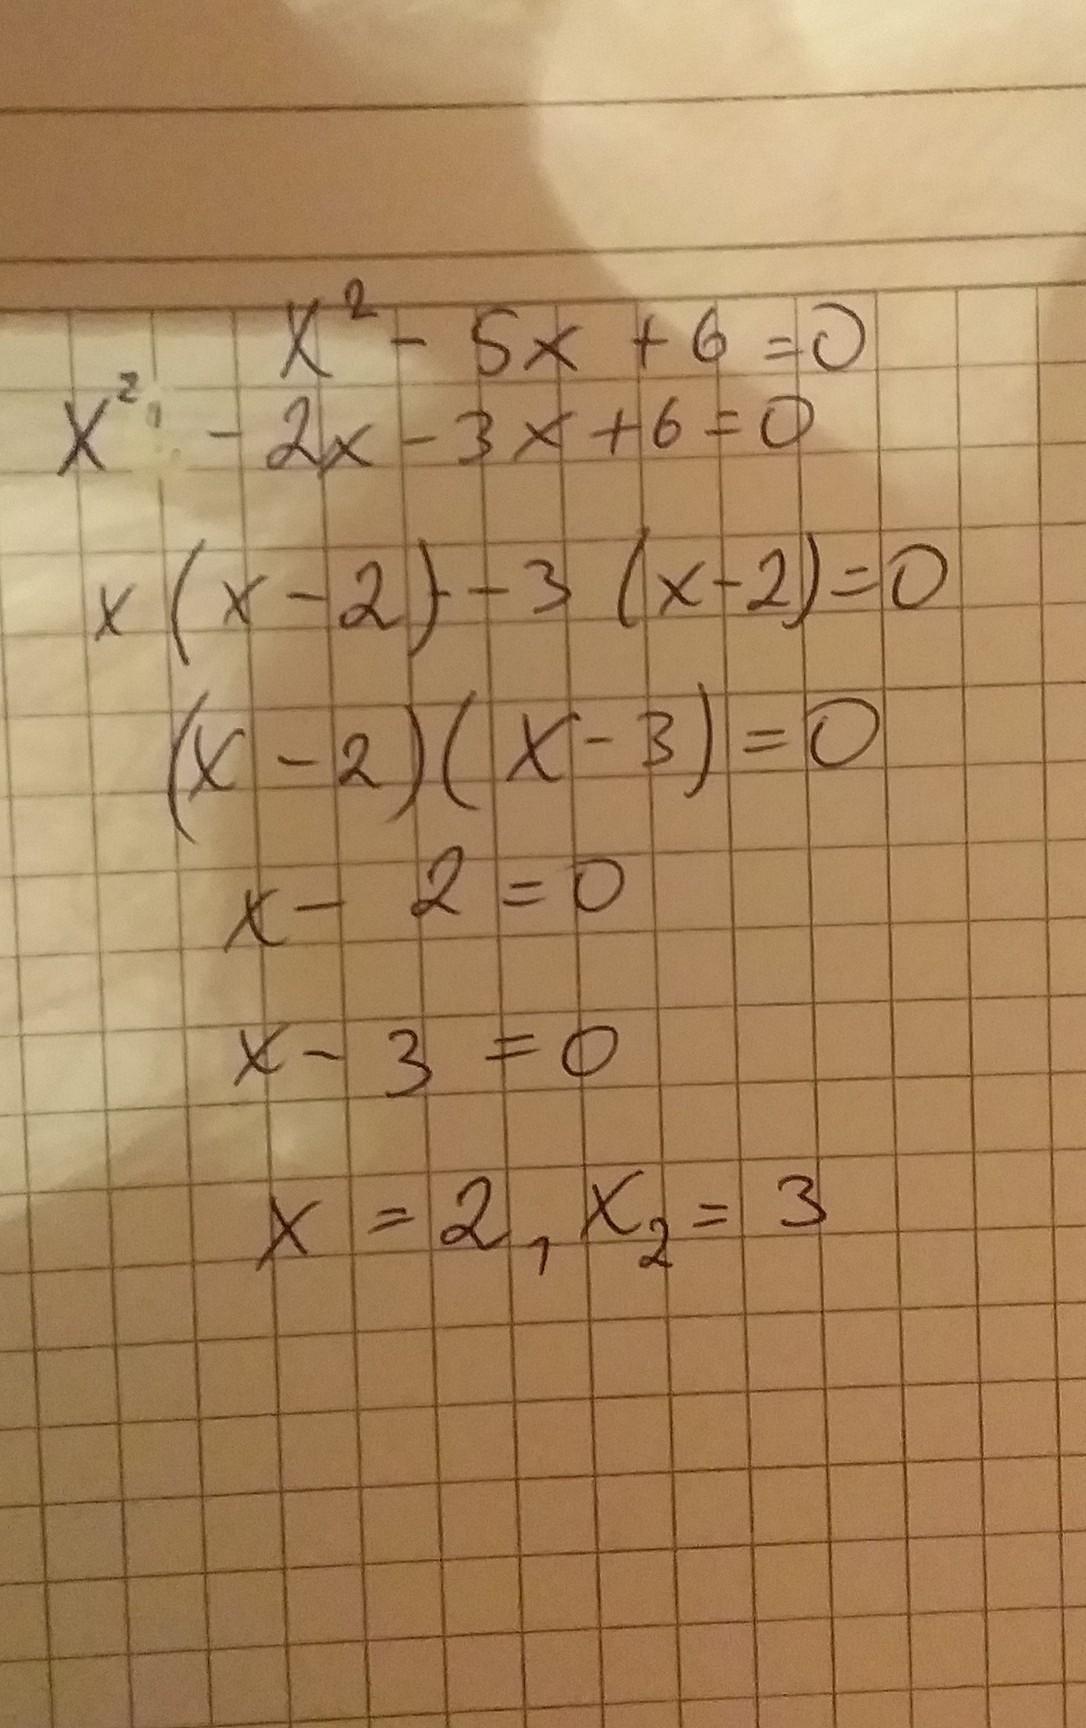 x² - 5x + 6 = 0
x² - 2x - 3x + 6 = 0
x (x - 2) - 3 (x - 2) = 0
(x - 2)(x - 3) = 0
x - 2 = 0
x - 3 = 0
x = 2, x₂ = 3